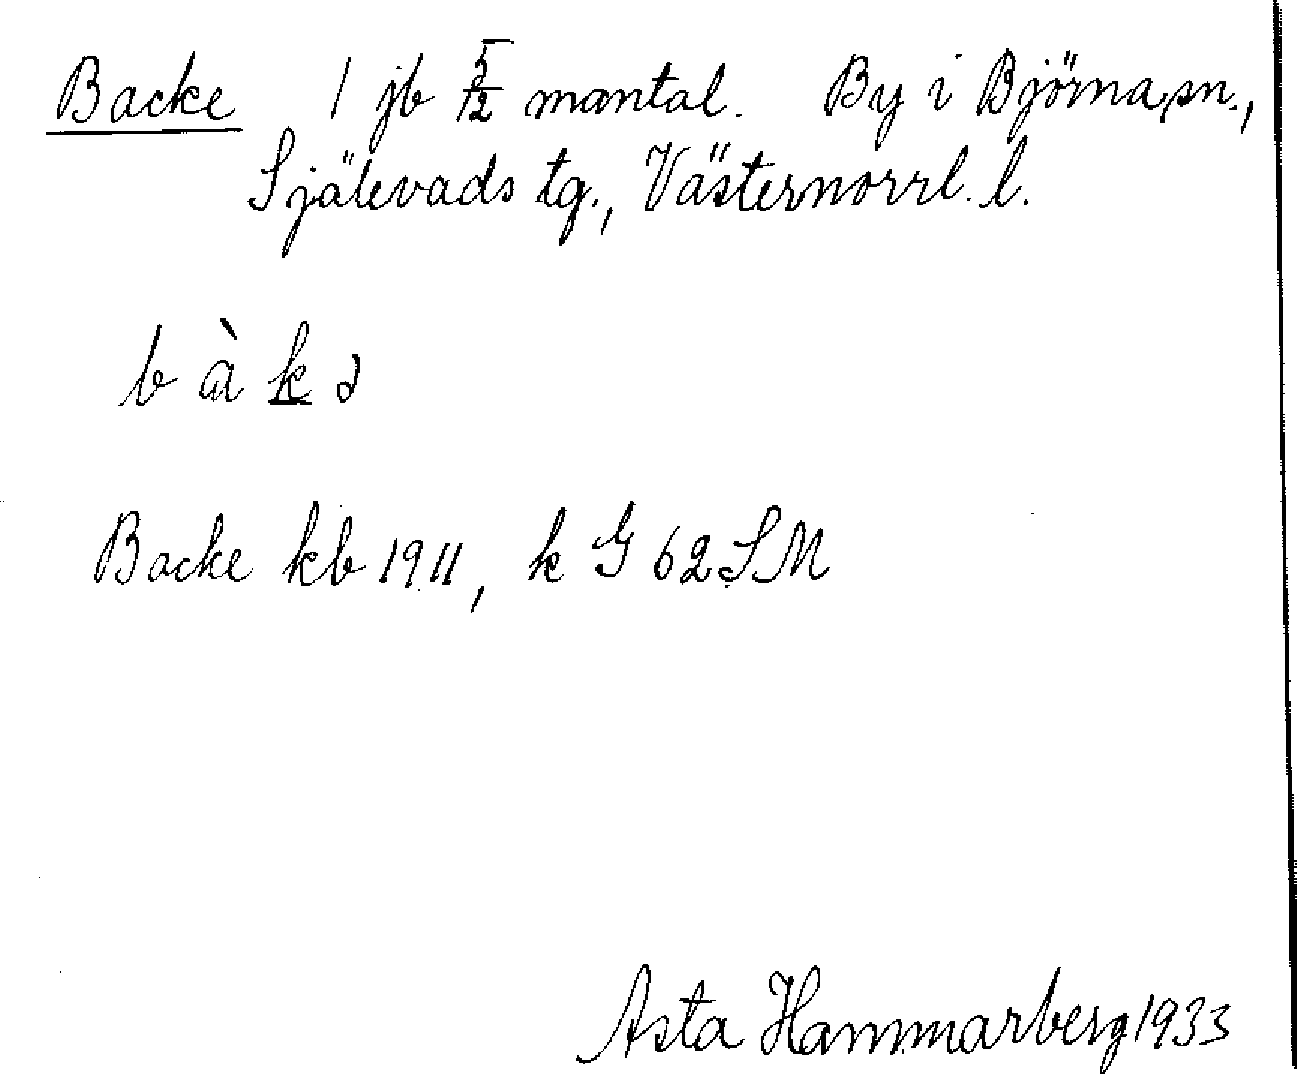 Backe 1 jb 5/12 mantal. By i Björna sn.,
Själevads tg., Västernorrl. l.
b à k ə
Backe kb 1911, k G 62 SM
Asta Hammarberg 1933